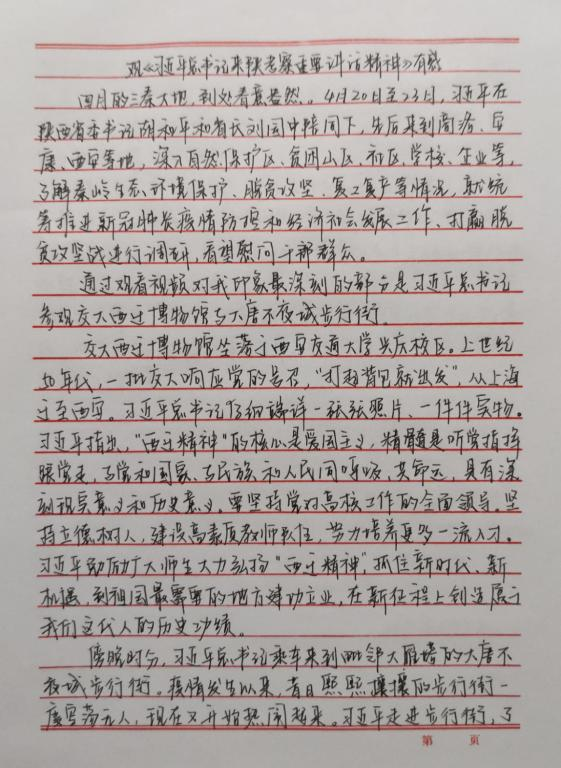 观《习近平总书记来陕考察重要讲话精神》有感
四月的三秦大地,到处春意盎然。4月20日至23日,习近平在
陕西省委书记胡和平和省长刘国中陪同下,先后来到商洛、安
康、西安等地,深入自然保护区、贫困山区、社区、学校、企业等,
了解秦岭生态环境保护、脱贫攻坚、复工复产等情况,就统
筹推进新冠肺炎疫情防控和经济社会发展工作、打赢脱
贫攻坚战进行调研,看望慰问干部群众。
通过观看视频对我印象最深刻的部分是习近平总书记
参观交大西迁博物馆与大唐不夜城步行街。
交大西迁博物馆坐落于西安交通大学兴庆校区。上世纪
50年代,一批交大响应党的号召,“打起背包就出发”,从上海
迁至西安。习近平总书记仔细端详一张张照片、一件件实物。
习近平指出,“西迁精神”的核心是爱国主义,精髓是听党指挥
跟党走,与党和国家、与民族和人民同呼吸、共命运,具有深
刻现实意义和历史意义。要坚持党对高校工作的全面领导。坚
持立德树人,建设高素质教师队伍,努力培养更多一流人才。
习近平勉励广大师生大力弘扬“西迁精神”,抓住新时代新
机遇,到祖国最需要的地方建功立业,在新征程上创造属于
我们这代人的历史功绩。
傍晚时分,习近平总书记乘车来到毗邻大雁塔的大唐不
夜城步行街。疫情发生以来,昔日熙熙攘攘的步行街一
度空荡无人,现在又开始热闹起来。习近平走进步行街,了
第 页